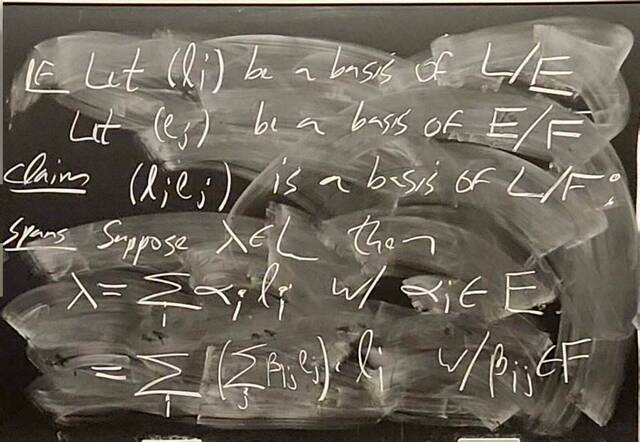 Pf Let (l_i) be a basis of L/E
Let (e_j) be a basis of E/F
Claim (l_i e_j) is a basis of L/F:
Spans Suppose λ∈L then
λ = ∑_i α_i l_i w/ α_i ∈ E.
= ∑_i (∑_j β_ij e_j)·l_i w/ β_ij ∈ F